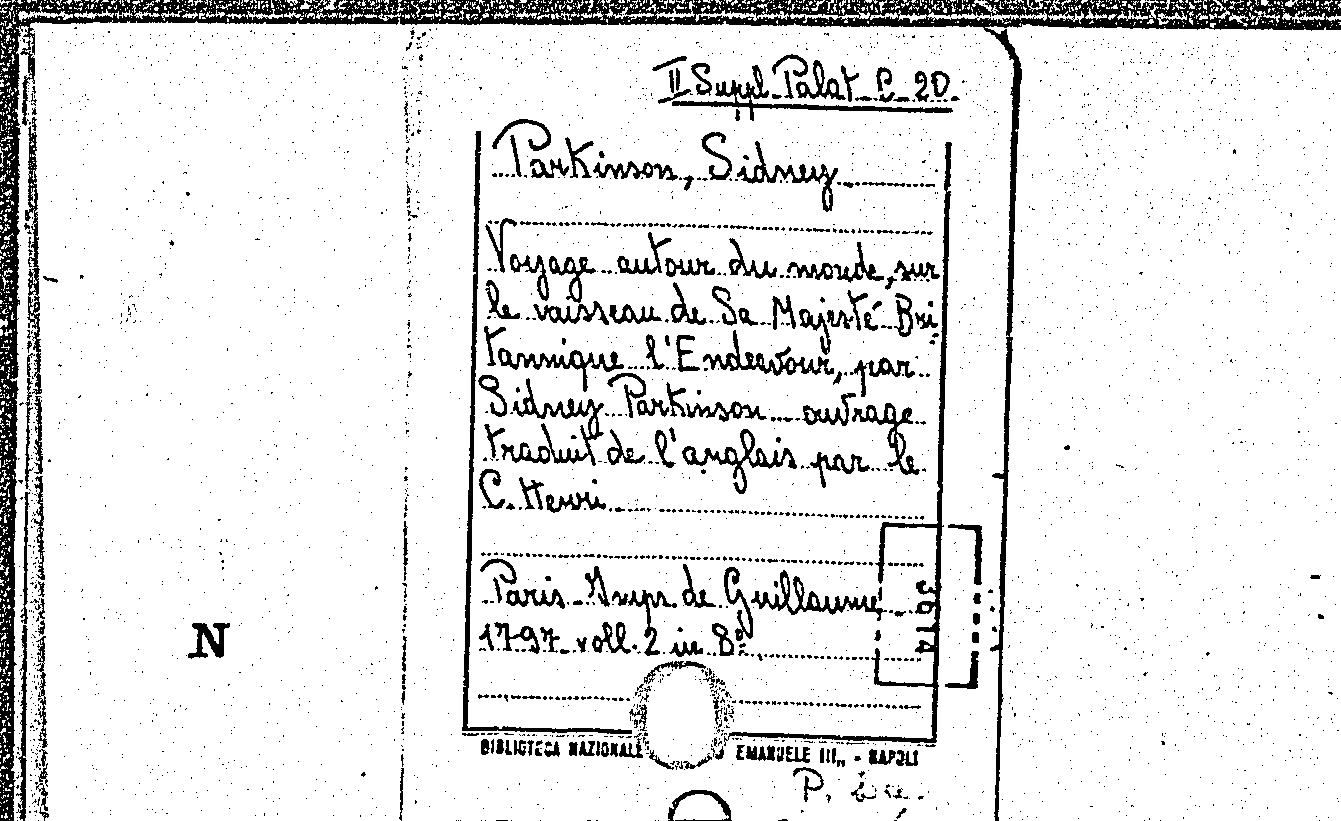 II Suppl. Palat. C. 20.
Parkinson, Sidney
Voyage autour du monde, sur
le vaisseau de Sa Majesté Bri
tannique l'Endeavour, par
Sidney Parkinson ouvrage
traduit de l'anglais par le
C. Henri
3614
Paris Imp. de Guillaume
1797 voll. 2 in 8º
N
BIBLIOTECA NAZIONALE EMANUELE III„ - NAPOLI
P.